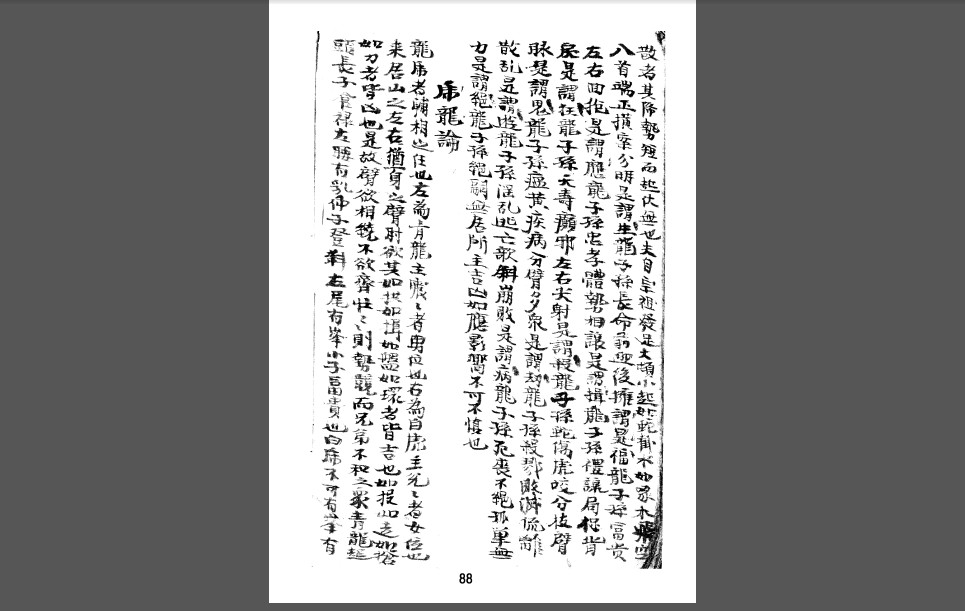 散者其降勢短而起伏無也夫自宗祖發足大頓小起如蛇掛水如豕木飛空
八首端正橫案分明是謂生龍子孫長命前迎後擁謂是福龍子孫富貴
左右回抱是謂應龍子孫忠孝體勢相讓是謂揖龍子孫禮讓局促背
戾是謂狂龍子孫夭壽癲邪左右尖射是謂殺龍子孫蛇傷虎咬分枝臂
脉是謂鬼龍子孫瘟黃疾病分臂多衆是謂刼龍子孫殺戮敗滅係離
散乱是謂遊龍子孫淫乱逃亡歌斜崩敗是謂病龍子孫危喪不絕孤單無
力是謂絕龍子孫絕嗣無居所主吉凶如應影響不可不慎也
虎龍論
龍虎者輔相之任也左為青龍主震〻者男位也右為白虎主兌〻者女位也
来居山之左右猶身之臂肘欲其如拱如揖如盤如環者皆吉也如捉如走如搶
如刀者皆凶也是故臂欲相繞不欲齊性〻則勢競而兄弟不和之衆青龍起
頭長子食祿左勝有乳仲子登科左尾有峯小子富貴也白虎不可有峯有
88